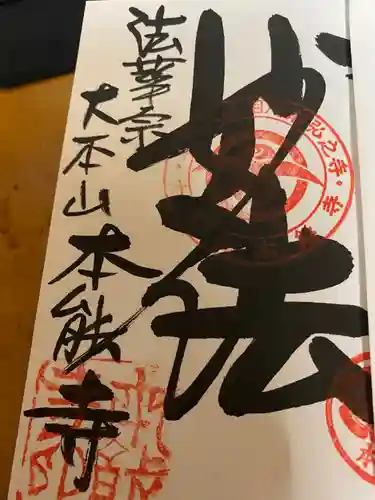 妙法
法華宗
大本山 本能寺